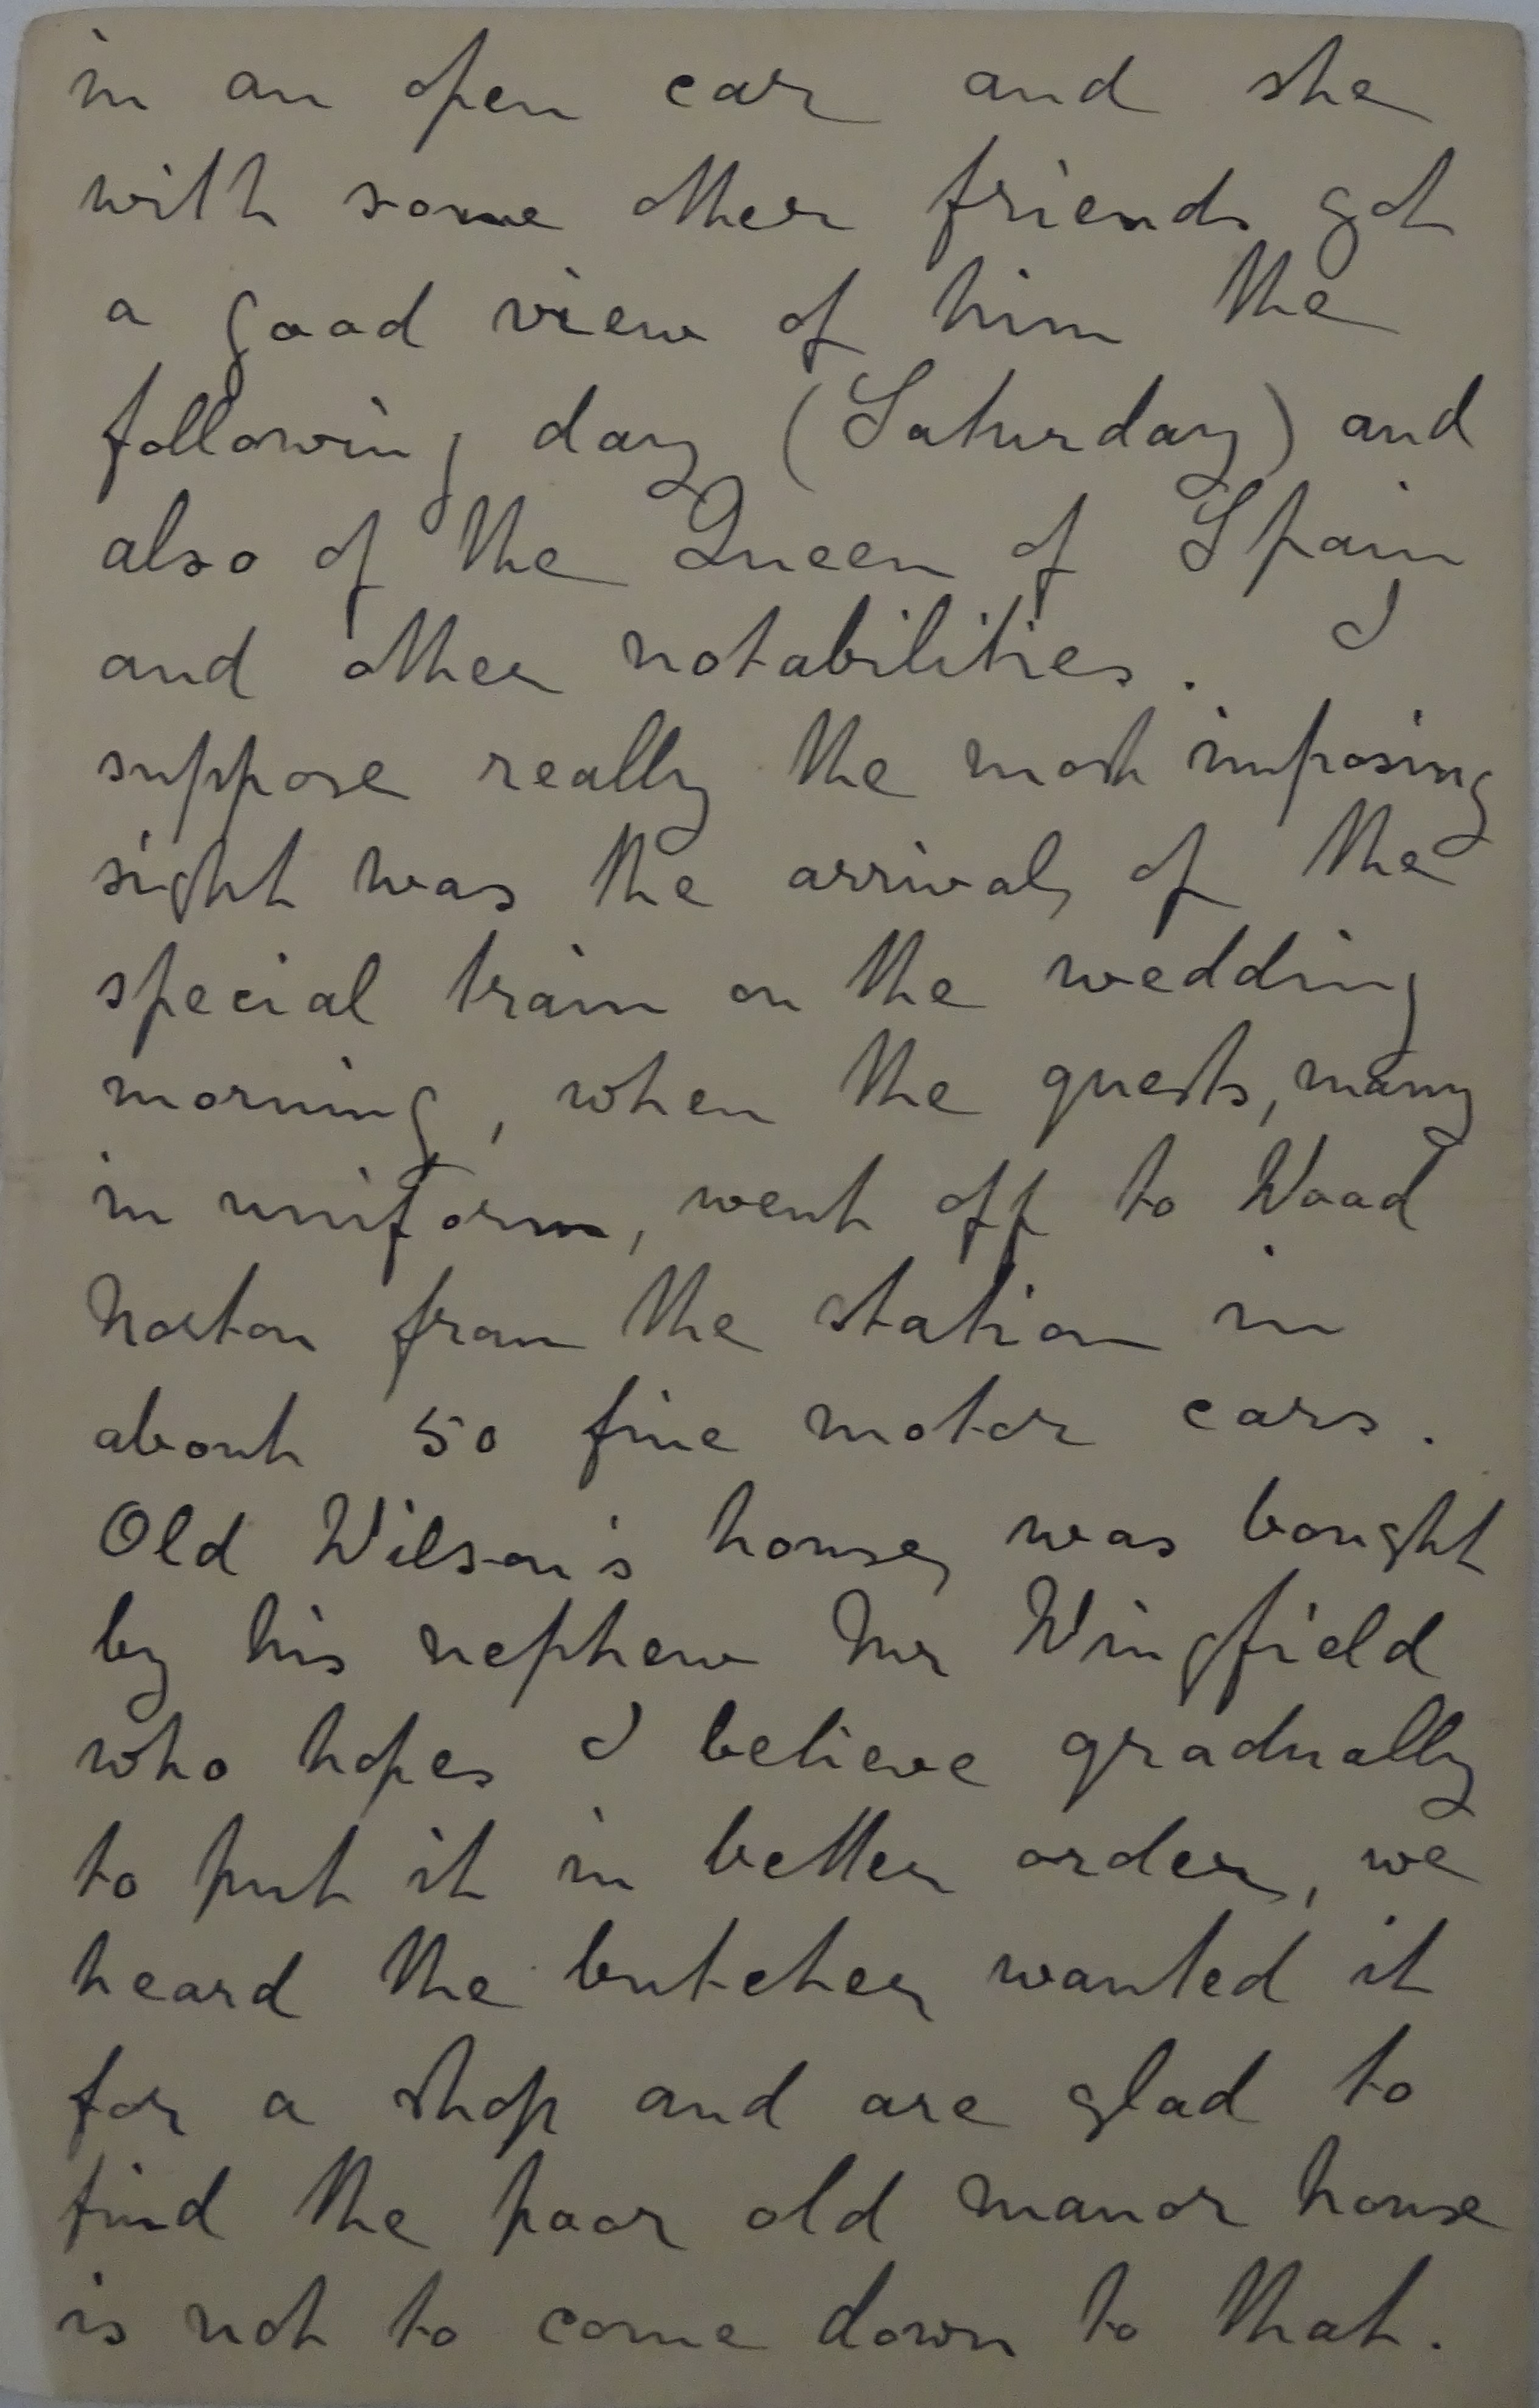 in an open car and she
with some other friends got
a good view of him the
following day (Saturday) and
also of the Queen of Spain
and other notabilities. I
suppose really the most imposing
sight was the arrival, of the
special train on the wedding
morning, when the guests, many
in uniform, went off to Wood
Norton from the station in
about 50 fine motor cars.
Old Wilson's house, was bought
by his nephew Mr Wingfield
who hopes I believe gradually
to put it in better order, we
heard the butcher, wanted it
for a shop and are glad to
find the poor old manor house
is not to come down to that.